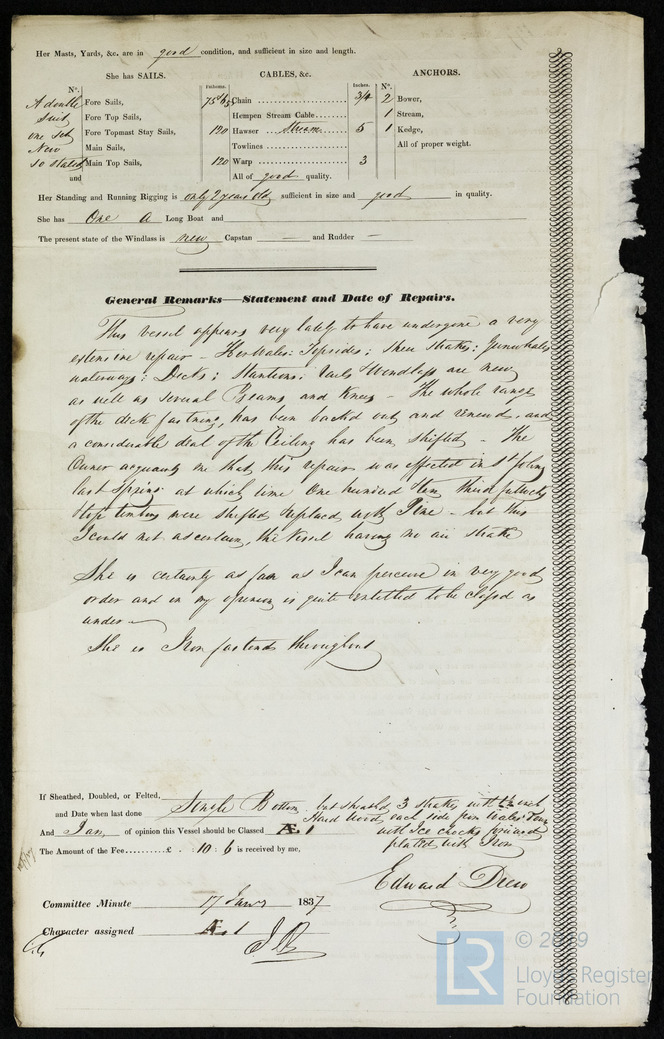 Her Masts, Yards, &c. are in good condition, and sufficient in size and length.
She has SAILS. CABLES, &c. ANCHORS.
N°. Fathoms. Inches. N°.
A double Fore Sails, Chain 3/4 2 Bower,
Suit Fore Top Sails, Hempen Stream Cable 1 Stream,
one set Fore Topmast Stay Sails, 120 Hawser Stream 5 1 Kedge,
New Main Sails, Towlines All of proper weight.
so stated Main Top Sails, 120 Warp 3
and All of good quality.
Her Standing and Running Rigging is only 2 years old sufficient in size and good in quality.
She has One A Long Boat and
The present state of the Windlass is new Capstan — and Rudder —
General Remarks—Statement and Date of Repairs.
This vessel appears very lately to have undergone a very
extensive repair – Her Wales: Topsides: Sheer strakes: Gunwhales
waterways: Decks: Stantions: rails Windlass are new
as well as several Beams and Knees – The whole range
of the deck fastning, has been back'd out and renewd. and
a considerable deal of the Ceiling has been shifted – The
Owner acquaints me that this repair was effected in St Johns
last Spring at which time One hundred Item third futtocks
& top timbers were shifted replaced with Pine – but this
I could not ascertain, the Vessel having no air strake
She is certainly as far as I can perceive in very good
order and in my opinion is quite entitled to be classed as
under –
She is Iron fastend throughout
If Sheathed, Doubled, or Felted,
and Date when last done Single Bottom but sheathd 3 strakes with inch
Hard wood each side from Wales down
And I am of opinion this Vessel should be Classed Æ 1 with Ice chocks forward
The Amount of the Fee £ : 10 : 6 is received by me, platted with Iron
Edward Drew
Committee Minute 17 Jany 1837
Character assigned Æ 1
© 2019
LR
Lloyd's Register
Foundation